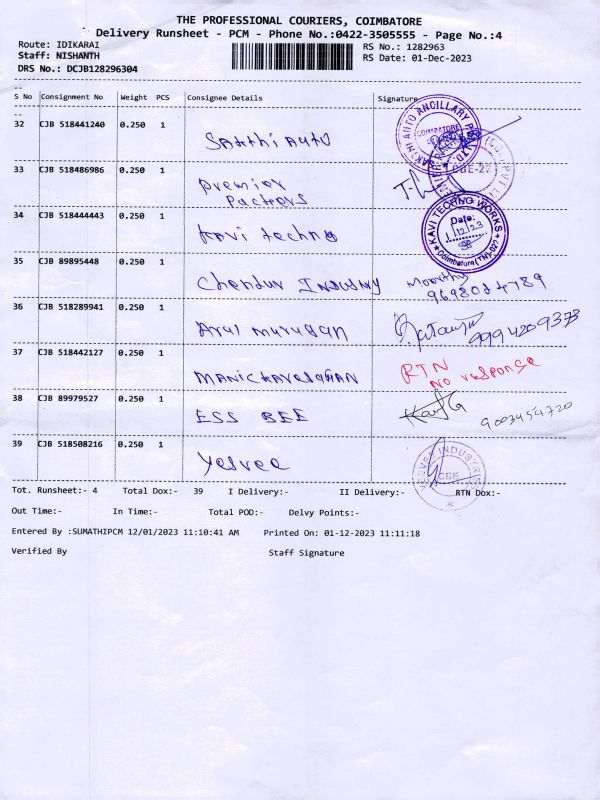 THE PROFESSIONAL COURIERS, COIMBATORE
Delivery Runsheet - PCM - Phone No.:0422-3505555 - Page No.:4
Route: IDIKARAI
RS No.: 1282963
Staff: NISHANTH
RS Date: 01-Dec-2023
DRS No.: DCJB128296304
S No Consignment No Weight PCS Consignee Details Signature
32 CJB 518441240 0.250 1 Sakthi Auto
33 CJB 518486986 0.250 1 Premier Packers
34 CJB 518444443 0.250 1 Kavi techno
KAVI TECHNO WORKS
Date:
1/12/23
Coimbatore(TN)-022
35 CJB 89895448 0.250 1 Chendur Industry Moorthy
36 CJB 518289941 0.250 1 Arul murugan 9994209373
37 CJB 518442127 0.250 1 RTN
No response
38 CJB 89979527 0.250 1 ESS BEE 9003454720
39 CJB 518508216 0.250 1 Yesvee
CBE
Tot. Runsheet:- 4 Total Dox:- 39 I Delivery:- II Delivery:- RTN Dox:-
Out Time:- In Time:- Total POD:- Delvy Points:-
Entered By :SUMATHIPCM 12/01/2023 11:10:41 AM Printed On: 01-12-2023 11:11:18
Verified By Staff Signature